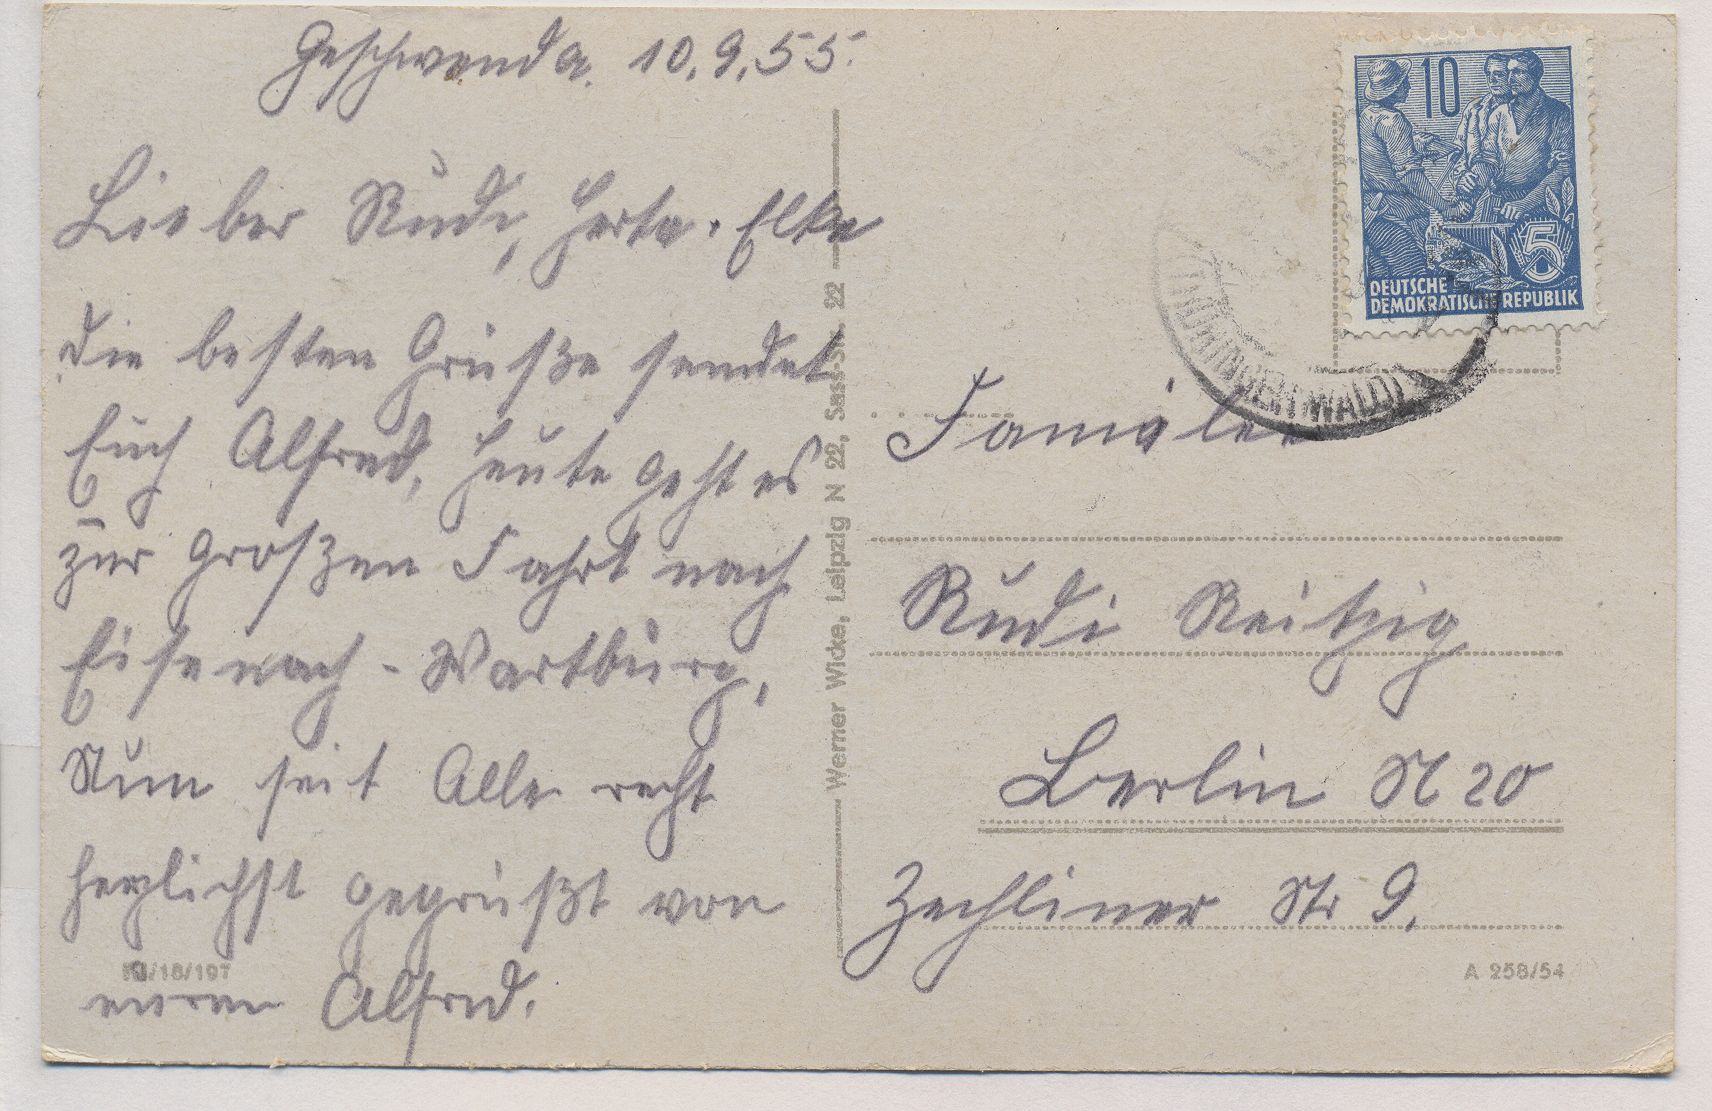 Geschwenda. 10.9.55.
Lieber Rudi, Herta. Elke
die besten Grüße sendet
Euch Alfred, heute geht es
zur großen Fahrt nach
Eisenach - Wartburg,
Nun seit Alle recht
herzlichst gegrüßt von
euren Alfred.
/18/197
Werner Wicke, Leipzig N 22, Sass-Str. 22
10
5
DEUTSCHE
DEMOKRATISCHE REPUBLIK
(THÜRINGER WALD)
Familie
Rudi Reitzig
Berlin N 20
Zechliner Str 9.
A 258/54